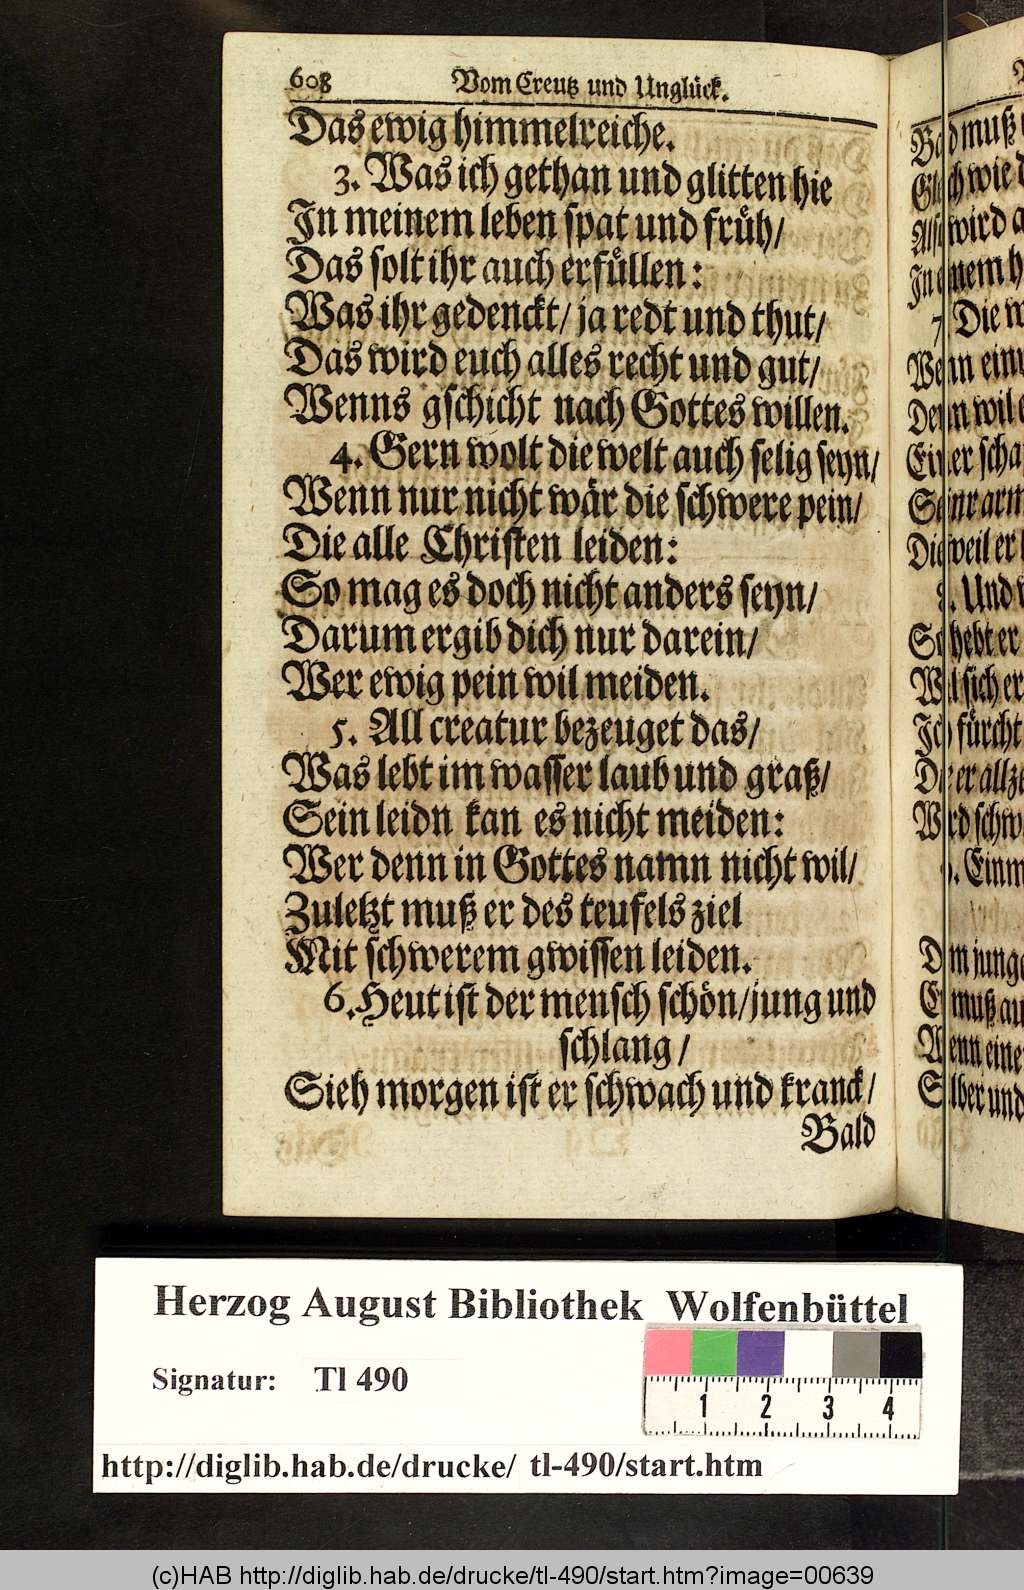 608
Vom Creutz und Unglück.
Das ewig himmelreiche.
3. Was ich gethan und glitten hie
In meinem leben spat und früh/
Das solt ihr auch erfüllen:
Was ihr gedenckt/ ja redt und thut/
Das wird euch alles recht und gut/
Wenns gschicht nach Gottes willen.
4. Gern wolt die welt auch selig seyn/
Wenn nur nicht wär die schwere pein/
Die alle Christen leiden:
So mag es doch nicht anders seyn/
Darum ergib dich nur darein/
Wer ewig pein wil meiden.
5. All creatur bezeuget das/
Was lebt im wasser laub und graß/
Sein leidn kan es nicht meiden:
Wer denn in Gottes namn nicht wil/
Zuletzt muß er des teufels ziel
Mit schwerem gwissen leiden.
6. Heut ist der mensch schön/ jung und
schlang/
Sieh morgen ist er schwach und kranck/
Bald
muß
wie
wird
Die
Wenn
Einer
Dieweil er
8. Und
hebt er
sich er
Ich fürcht
er
9. Einm
muß
Wenn einer
Selber und
Herzog August Bibliothek Wolfenbüttel
Signatur: Tl 490
1 2 3 4
http://diglib.hab.de/drucke/ tl-490/start.htm
(c)HAB http://diglib.hab.de/drucke/tl-490/start.htm?image=00639